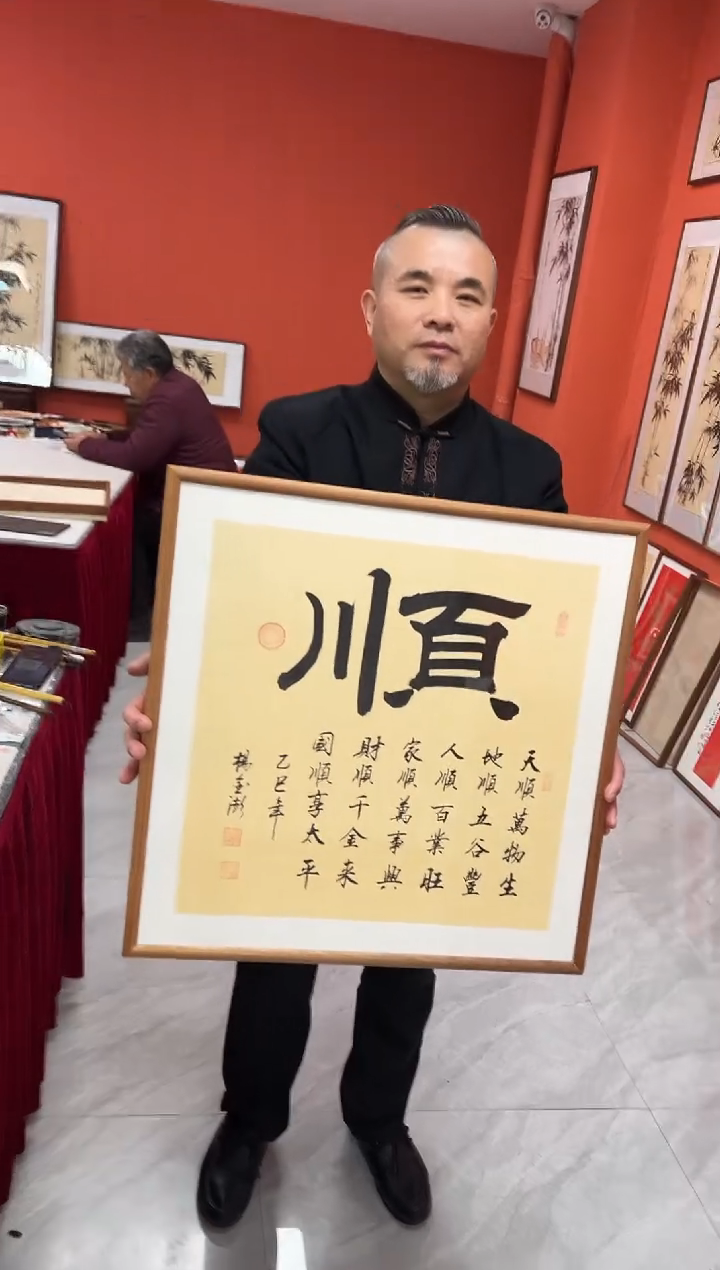 順
天順萬物生
地順五谷豐
人順百業旺
家順萬事興
財順千金来
國順享太平
乙巳年
楊金澎